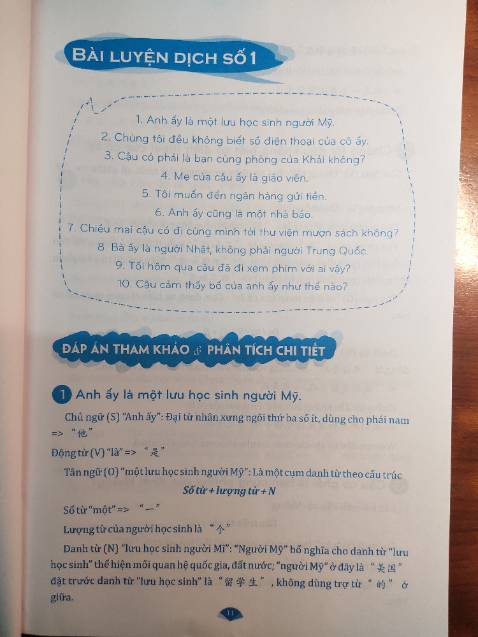 BÀI LUYỆN DỊCH SỐ 1
1. Anh ấy là một lưu học sinh người Mỹ.
2. Chúng tôi đều không biết số điện thoại của cô ấy.
3. Cậu có phải là bạn cùng phòng của Khải không?
4. Mẹ của cậu ấy là giáo viên.
5. Tôi muốn đến ngân hàng gửi tiền.
6. Anh ấy cũng là một nhà báo.
7. Chiều mai cậu có đi cùng mình tới thư viện mượn sách không?
8. Bà ấy là người Nhật, không phải người Trung Quốc.
9. Tối hôm qua cậu đã đi xem phim với ai vậy?
10. Cậu cảm thấy bố của anh ấy như thế nào?
ĐÁP ÁN THAM KHẢO & PHÂN TÍCH CHI TIẾT
1 Anh ấy là một lưu học sinh người Mỹ.
Chủ ngữ (S) "Anh ấy": Đại từ nhân xưng ngôi thứ ba số ít, dùng cho phái nam
=> "他"
Động từ (V) "là" => "是"
Tân ngữ (O) "một lưu học sinh người Mỹ": Là một cụm danh từ theo cấu trúc
Số từ + lượng từ + N
Số từ "một" => "一"
Lượng từ của người học sinh là "个"
Danh từ (N) "lưu học sinh người Mĩ": "Người Mỹ" bổ nghĩa cho danh từ "lưu
học sinh" thể hiện mối quan hệ quốc gia, đất nước; "người Mỹ" ở đây là "美国"
đặt trước danh từ "lưu học sinh" là "留学生", không dùng trợ từ "的" ở
giữa.
11